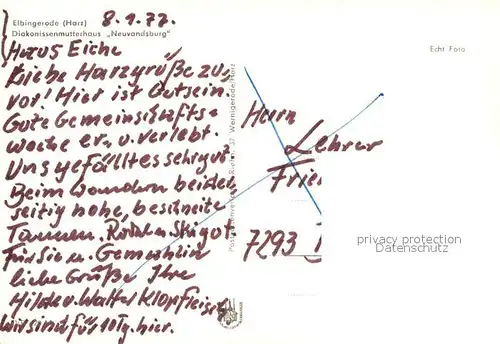 Elbingerode (Harz) 8.1.77.
Diakonissenmutterhaus „Neuvandsburg"
Haus Eiche
Liebe Harzgrüße zu-
vor! Hier ist Gutsein.
Gute Gemeinschafts-
woche er- u. verlebt.
Uns gefällt es sehr gut.
Beim Wandern beider-
seitig hohe, beschneite
Tannen. Rodeln Ski gut.
Für Sie u. Gemahlin
liebe Grüße Ihre
Hilde u. Walter Klopfleisch
Wir sind für 10 Tg. hier.
Echt Foto
Wernigerode/Harz
Herrn
Lehrer
Frie
7293
privacy protection
Datenschutz